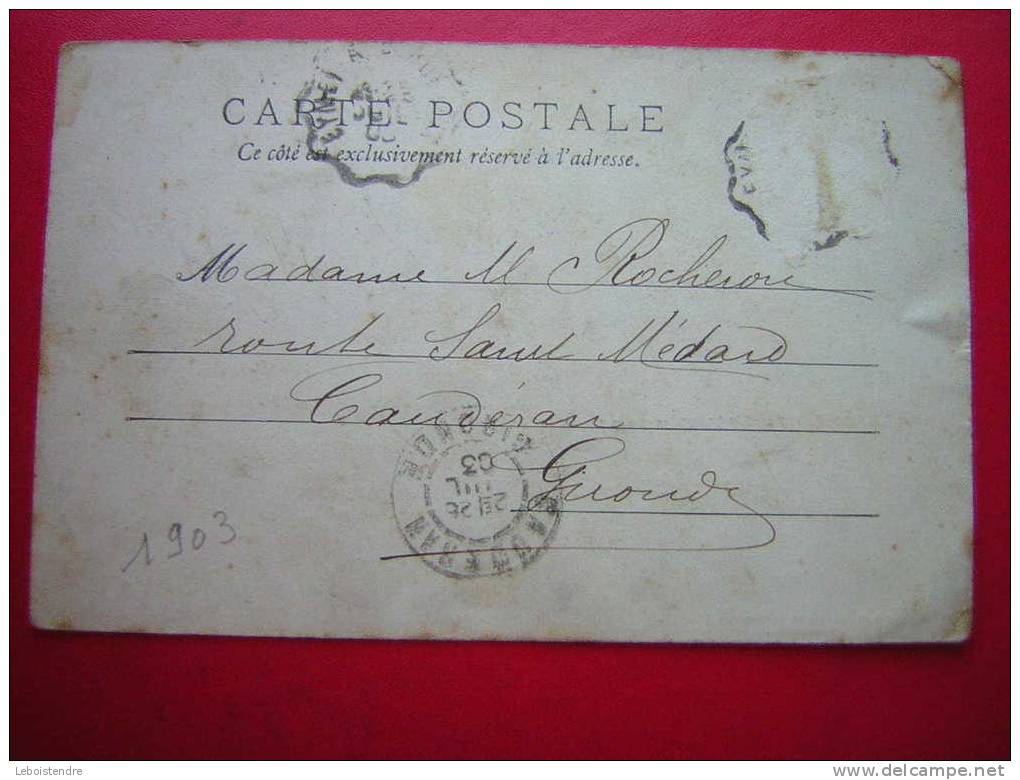 CARTE POSTALE
Ce côté est exclusivement réservé à l'adresse.
Madame M Rocheron
route Saint Médard
Caudéran
Gironde
CAUDERAN
GIRONDE
2E 26
JUIL
03
1903
Leboistendre
www.delcampe.net